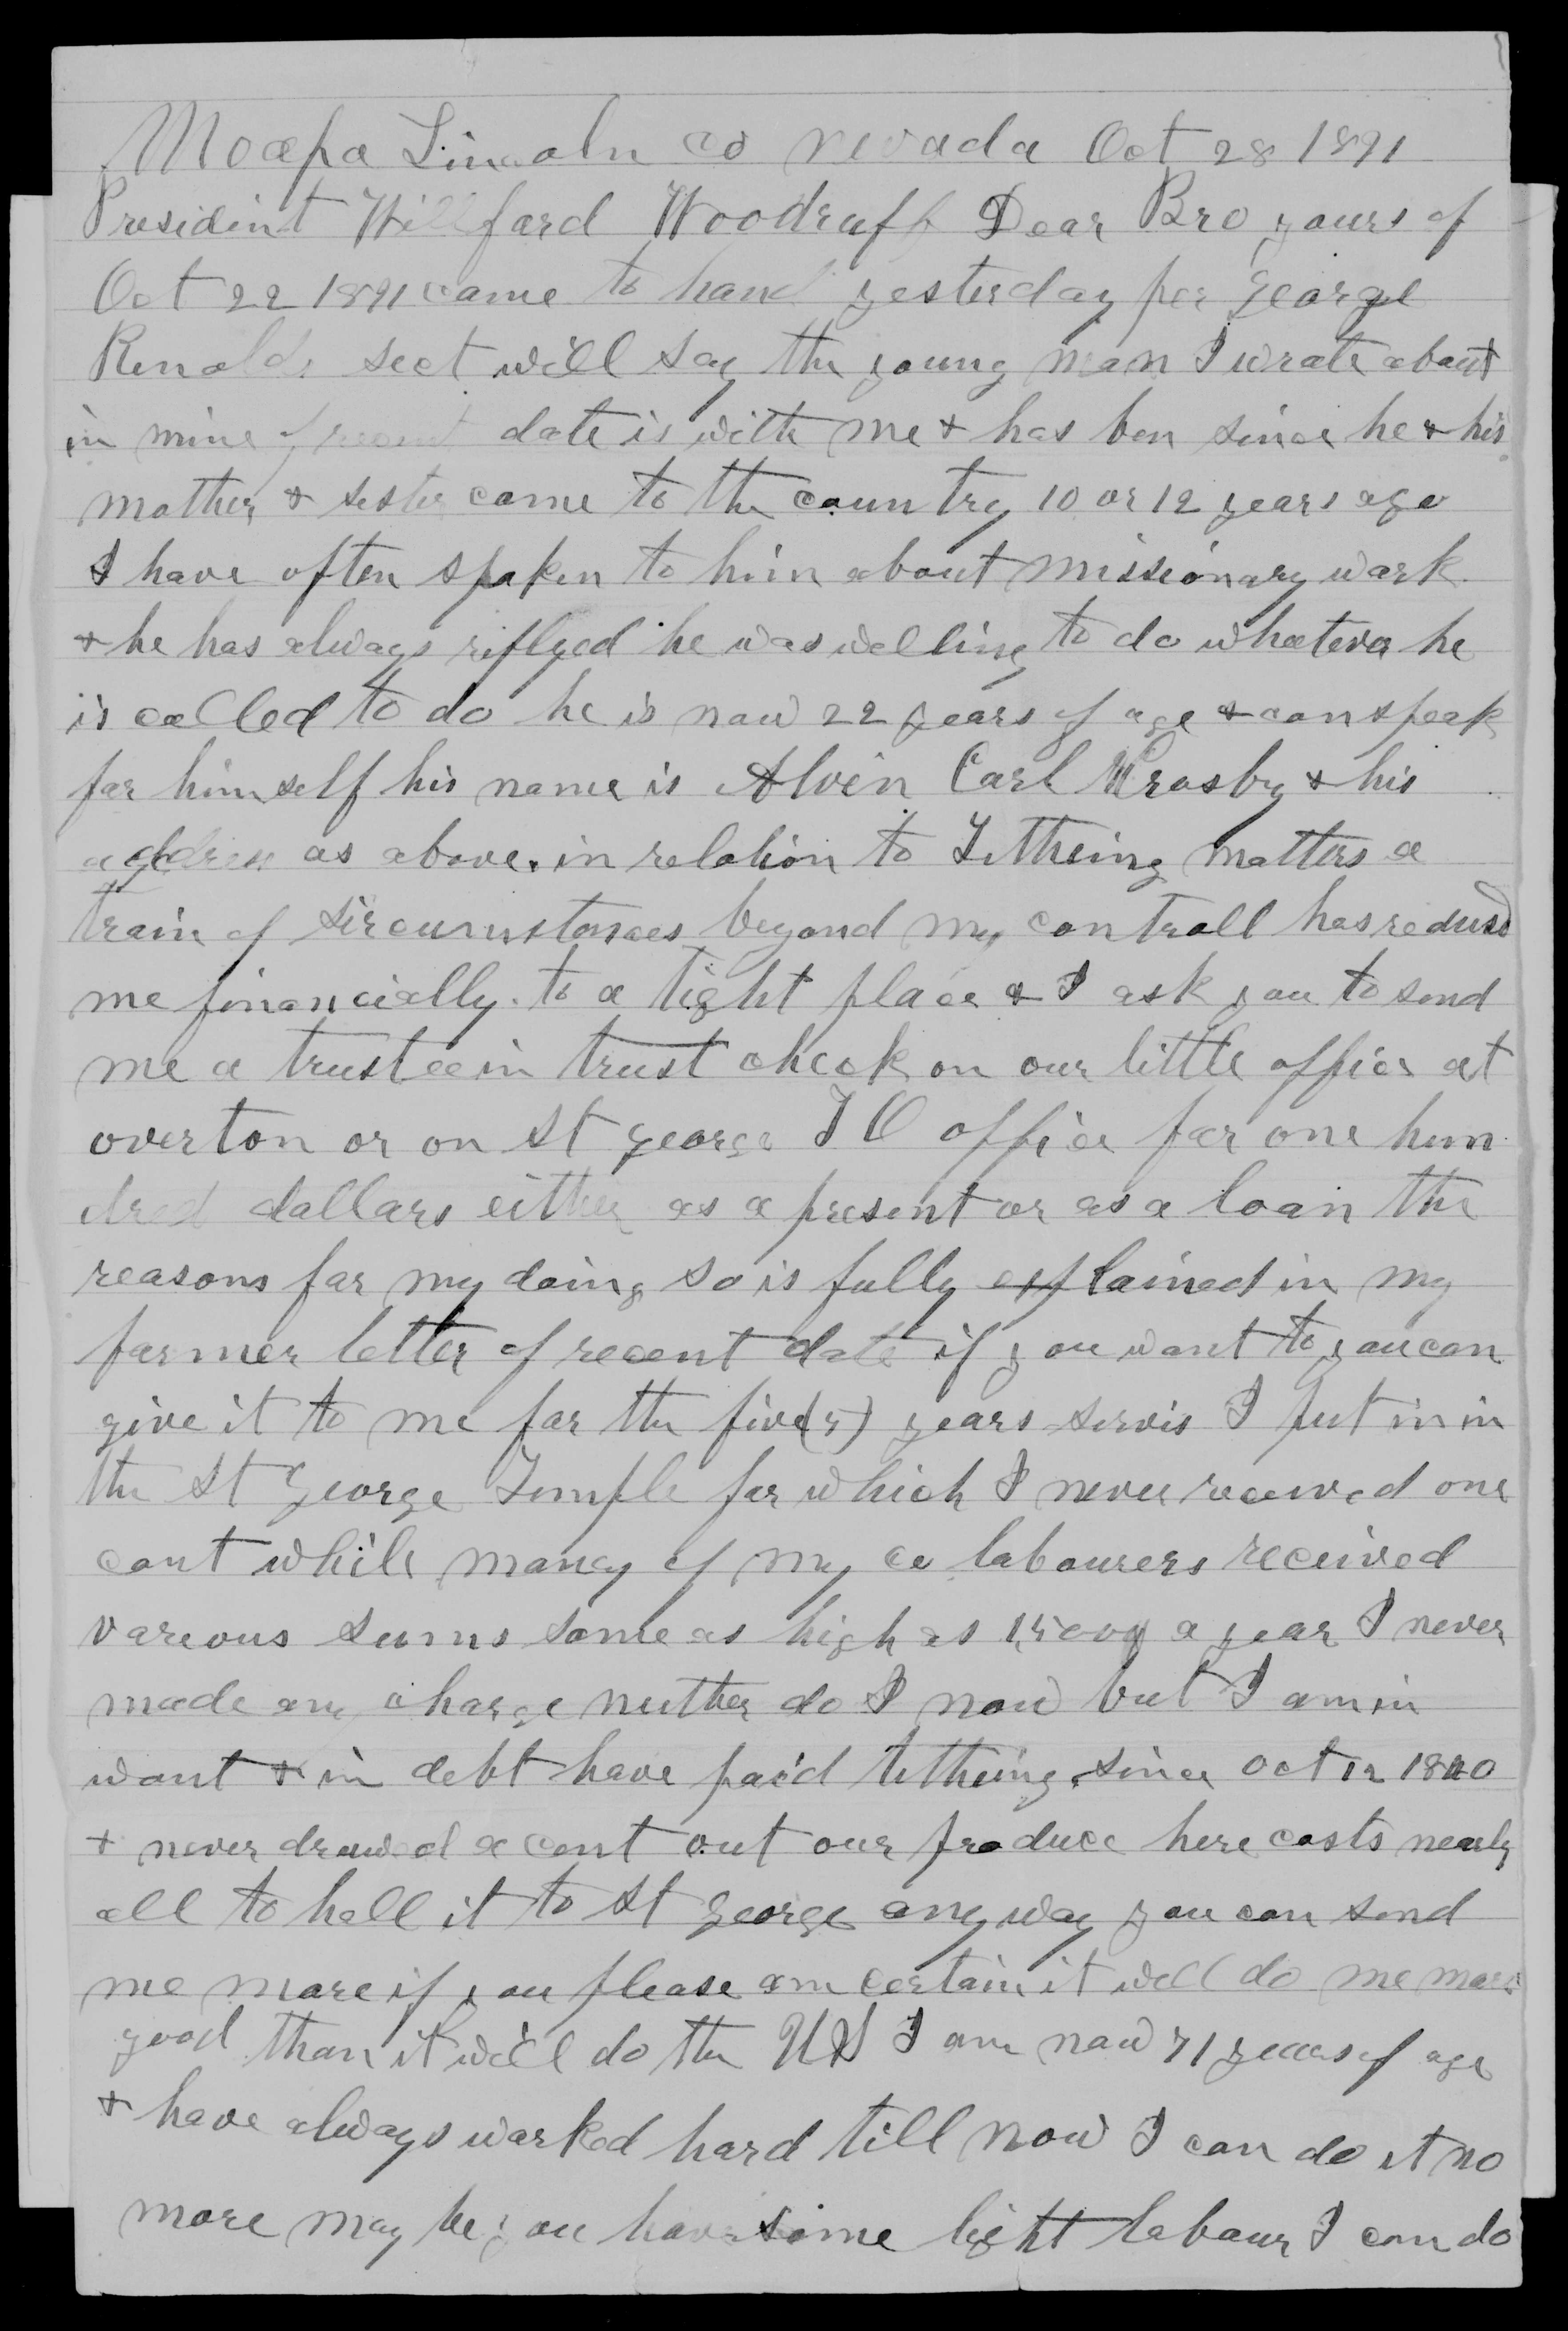 Moapa Lincoln co nevada Oct 28 1891
Presidint Willfard Woodruff Dear Bro yours of
Oct 22 1891 came to hand yesterday per george
Renolds sect will say the young man I wrate about
in mine of recent date is with me & has ben since he & his
mother & sister came to the country 10 or 12 years ago
I have often spoken to him about missionary wark
& he has always riplyed he was welling to do whatever he
is called to do he is naw 22 years of age & can speak
far himself his name is Alvin Carl Crosby & his
address as above. in relation to Titheing matters a
train of sircumstances beyond my controll has redused
me financially. to a tight place & I ask you to send
me a trustee in trust check on our little office at
overton or on St george T O office far one hun
dred dollars either as a present or as a loan the
reasons far my doing so is fully explained in my
farmer letter of recent date if you want to you can
give it to me far the five (5) years servis I put in in
the St George Temple for which I never received one
cent while maney of my co labourers received
vareous sums some as high as a year I never
made any charge nuther do I now but I am in
want & in debt have paid titheing since Oct 12 1840
& never drawed a cent out our produce here costs nearly
all to hall it to St george any way you can send
me more if you please am certain it will do me more
good than it will do the US I am naw 71 years of age
& have always warked hard till now I can do it no
more may be you have some light labour I can do